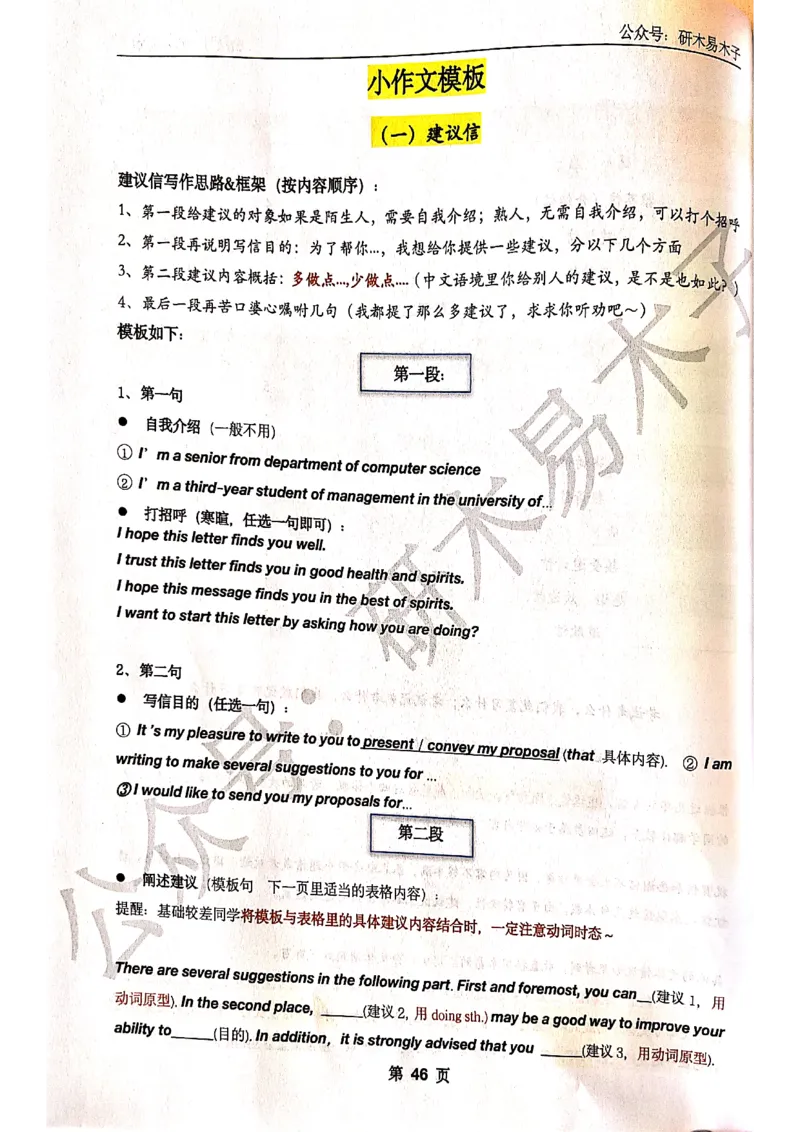 公众号：研木易木子
小作文模板
（一）建议信
建议信写作思路&框架（按内容顺序）：
1、第一段给建议的对象如果是陌生人，需要自我介绍；熟人，无需自我介绍，可以打个招呼
2、第一段再说明写信目的：为了帮你...，我想给你提供一些建议，分以下几个方面
3、第二段建议内容概括：多做点...,少做点....（中文语境里你给别人的建议，是不是也如此？）
4、最后一段再苦口婆心嘱咐几句（我都提了那么多建议了，求求你听劝吧～）
模板如下：
第一段:
1、第一句
● 自我介绍（一般不用）
① I' m a senior from department of computer science
② I' m a third-year student of management in the university of...
● 打招呼（寒暄，任选一句即可）：
I hope this letter finds you well.
I trust this letter finds you in good health and spirits.
I hope this message finds you in the best of spirits.
I want to start this letter by asking how you are doing?
2、第二句
● 写信目的（任选一句）：
① It 's my pleasure to write to you to present / convey my proposal (that 具体内容). ② I am
writing to make several suggestions to you for ...
③I would like to send you my proposals for...
第二段
● 阐述建议（模板句 下一页里适当的表格内容）；
提醒：基础较差同学将模板与表格里的具体建议内容结合时，一定注意动词时态～
There are several suggestions in the following part. First and foremost, you can__(建议 1，用
动词原型). In the second place, _____(建议 2, 用 doing sth.) may be a good way to improve your
ability to_____(目的). In addition, it is strongly advised that you _____(建议 3，用动词原型).
第 46 页
公众号：研木易木子